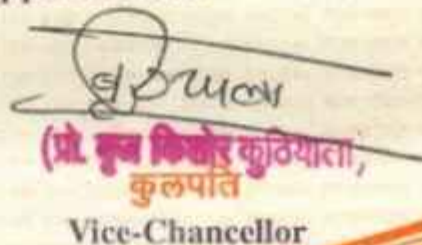 (प्रो. बृज किशोर कुठियाला)
कुलपति
Vice-Chancellor